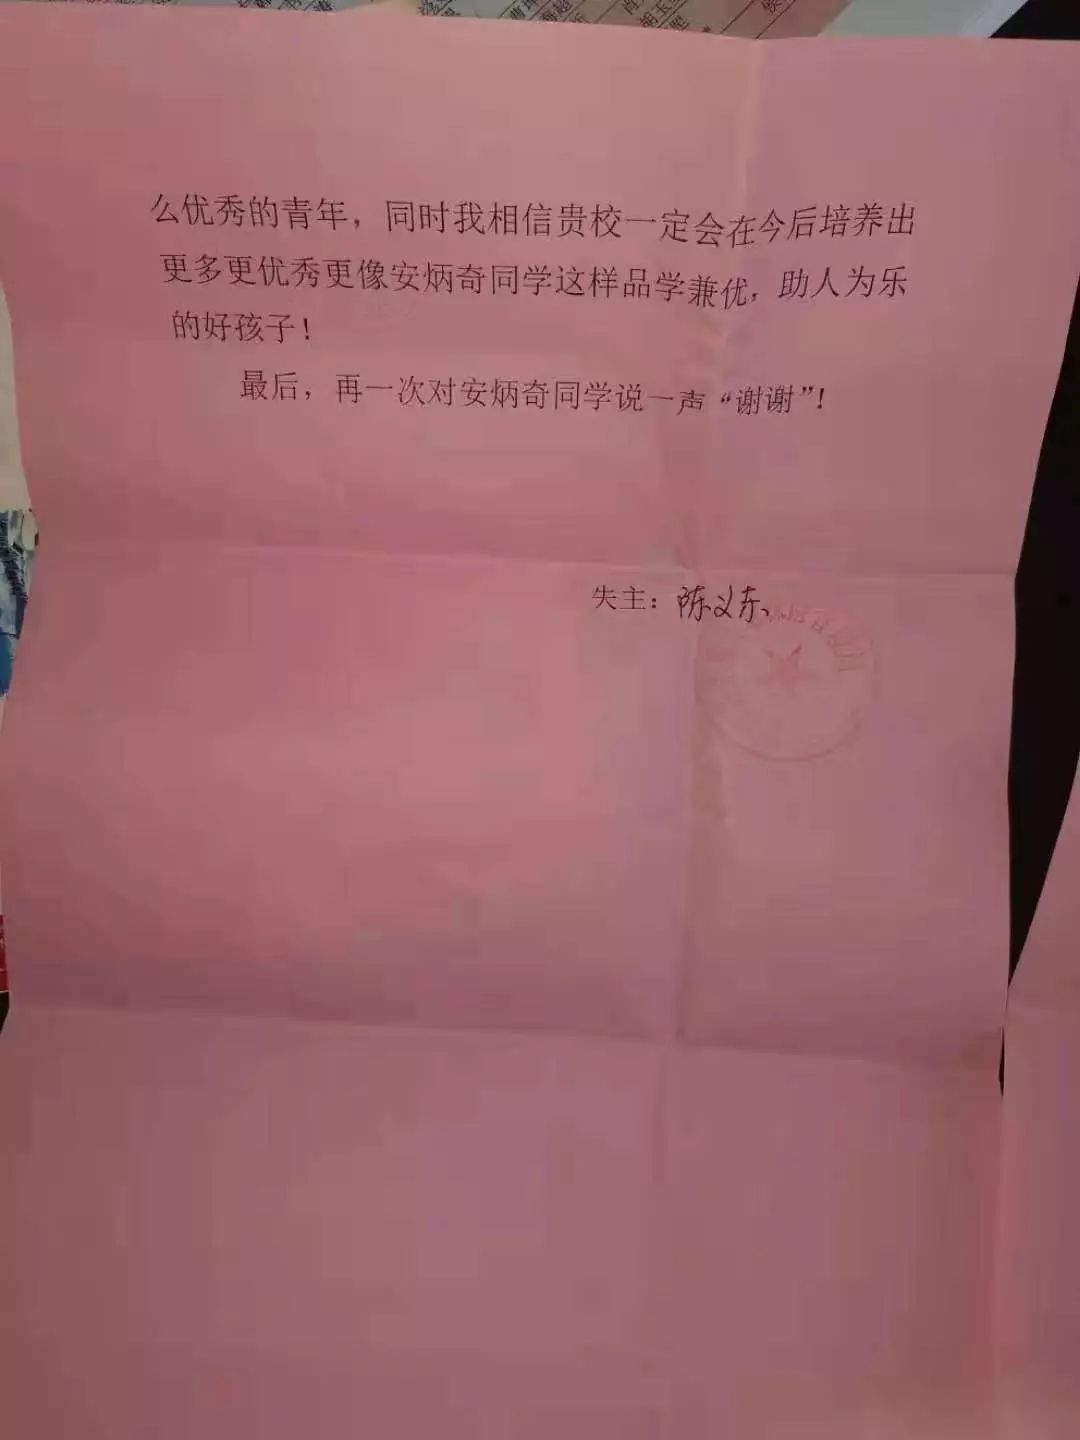 么优秀的青年，同时我相信贵校一定会在今后培养出
更多更优秀更像安炳奇同学这样品学兼优，助人为乐
的好孩子！
最后，再一次对安炳奇同学说一声“谢谢”！
失主：陈义东